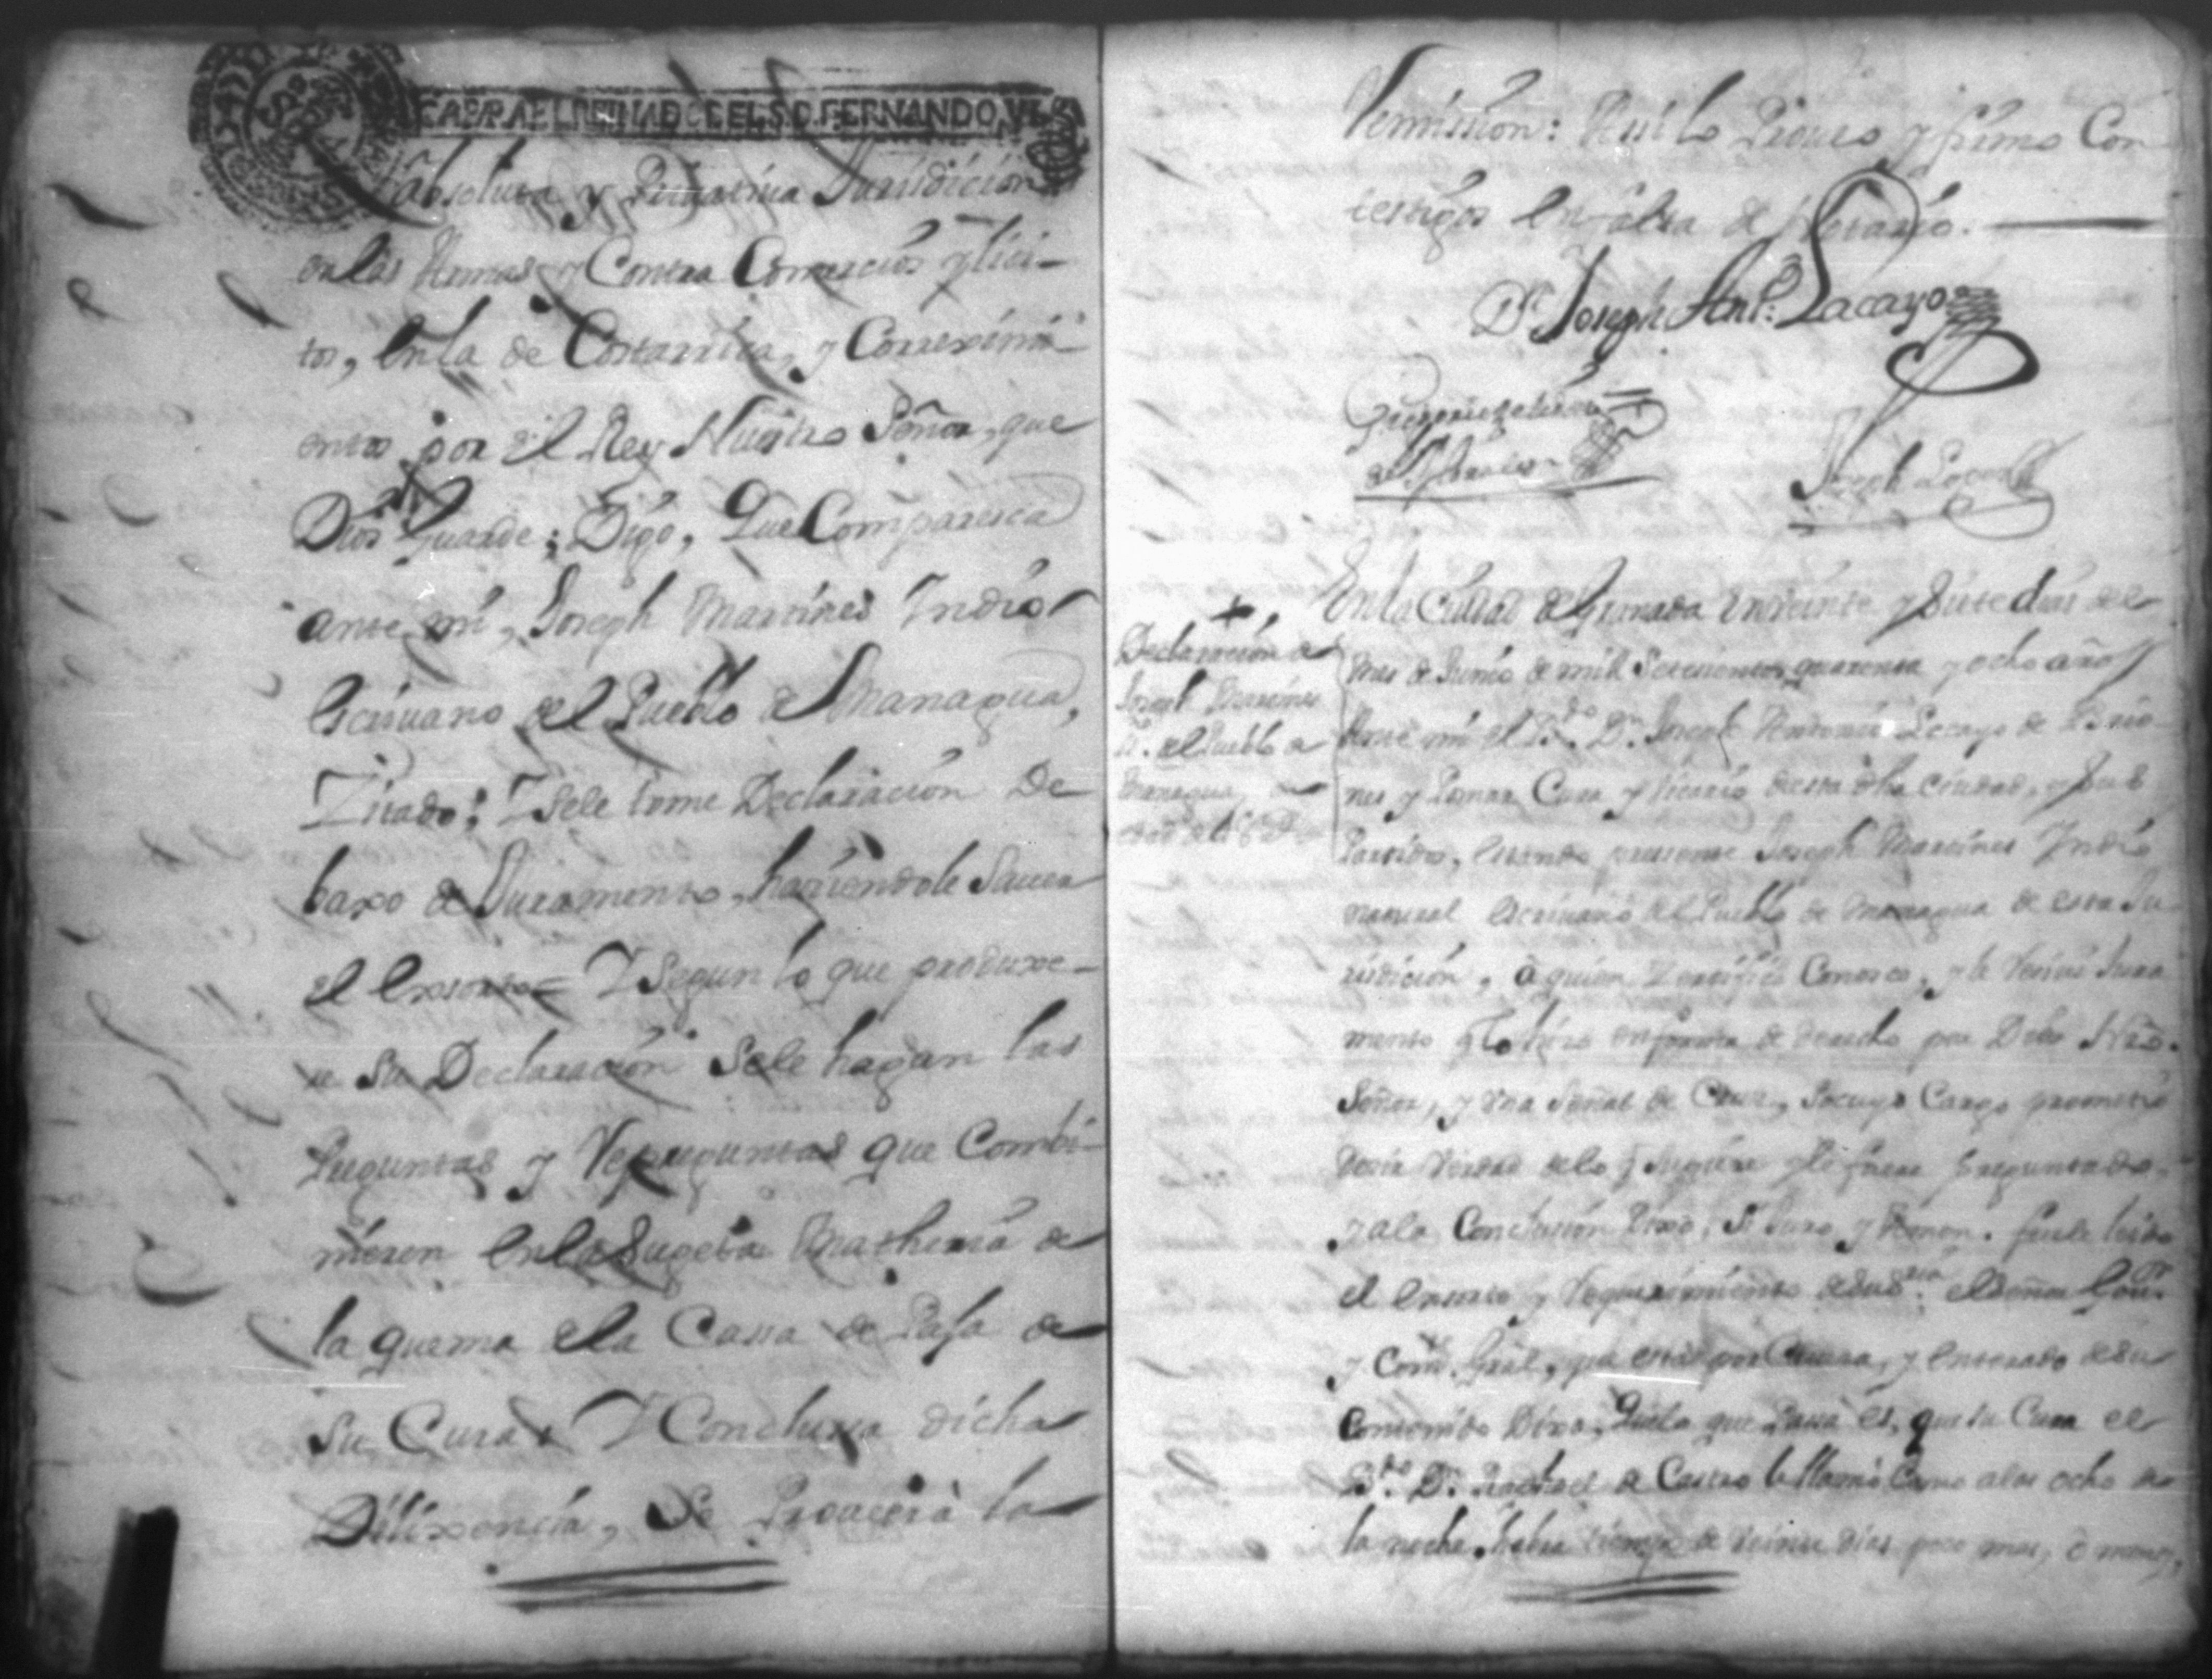 CABRA EL REINADO DEL S.D. FERNANDO VI.
absoluta y Pribatiua Jurisdicion
en las Armas, y Contra Comercios yliси-
tos, en la de Costarrica, y Correximi-
entos por el Rey Nuestro Señor, que
Dios Guarde; Digo, que Comparesca
ante mi, Joseph Martines Indio
escriuano del Pueblo de Managua,
Zitado; Y sele tome Declaracion de
baxo de Juramento, haziendole Sauer
el exsorto= Y Segun lo que produxe-
re Su Declaracion Sele hagan las
Preguntas y Repreguntas que Combi-
nieren en la Sugeta Matheria de
la quema de la Cassa de Paja de
Su Cura; Y Conclusa dicha
Dilixencia, Se Proueerà la
Remission: Assi lo Proueo y firmo Con
testigos en falta de Notario.
Dr Joseph Antº: Lacayo
Joseph
En la Ciudad de Granada en veinte y Siete dias del
mes de Junio de mil Setesientos quarenta y ocho años
Ante mi el Bdo. Dn. Joseph Antonio Lacayo de Brio
nes y Pomar Cura y Vicario desta dha Ciudad, y Su
Partido, estando presente Joseph Martines Indio
natural escriuano del Pueblo de Managua de esta Ju
risdicion, à quien Zertifico Conosco, y le Resiui Jura
mento q lo hizo en forma de derecho por Dios Nro.
Señor, y Vna Señal de Cruz, Socuyo Cargo prometio
desir Verdad de lo q Supiere y le fuere preguntado,
y a la Conclusion Dixo, Si Juro, y Amen. fuele leido
el exsorto y Requerimiento de Su Sria. el Señor Gour.
y Comte. Gral, que está por Cauesa, y enterado de Su
Contenido Dixo, Que lo que Passa es, que Su Cura el
Bdo. Dn. Raphael de Castro le llamò Como alas ocho de
la noche, habrà tiempo de Veinte dias poco mas, ò menos,
+
Declarasion de
Joseph Martines
Yo. del Pueblo de
Managua, de